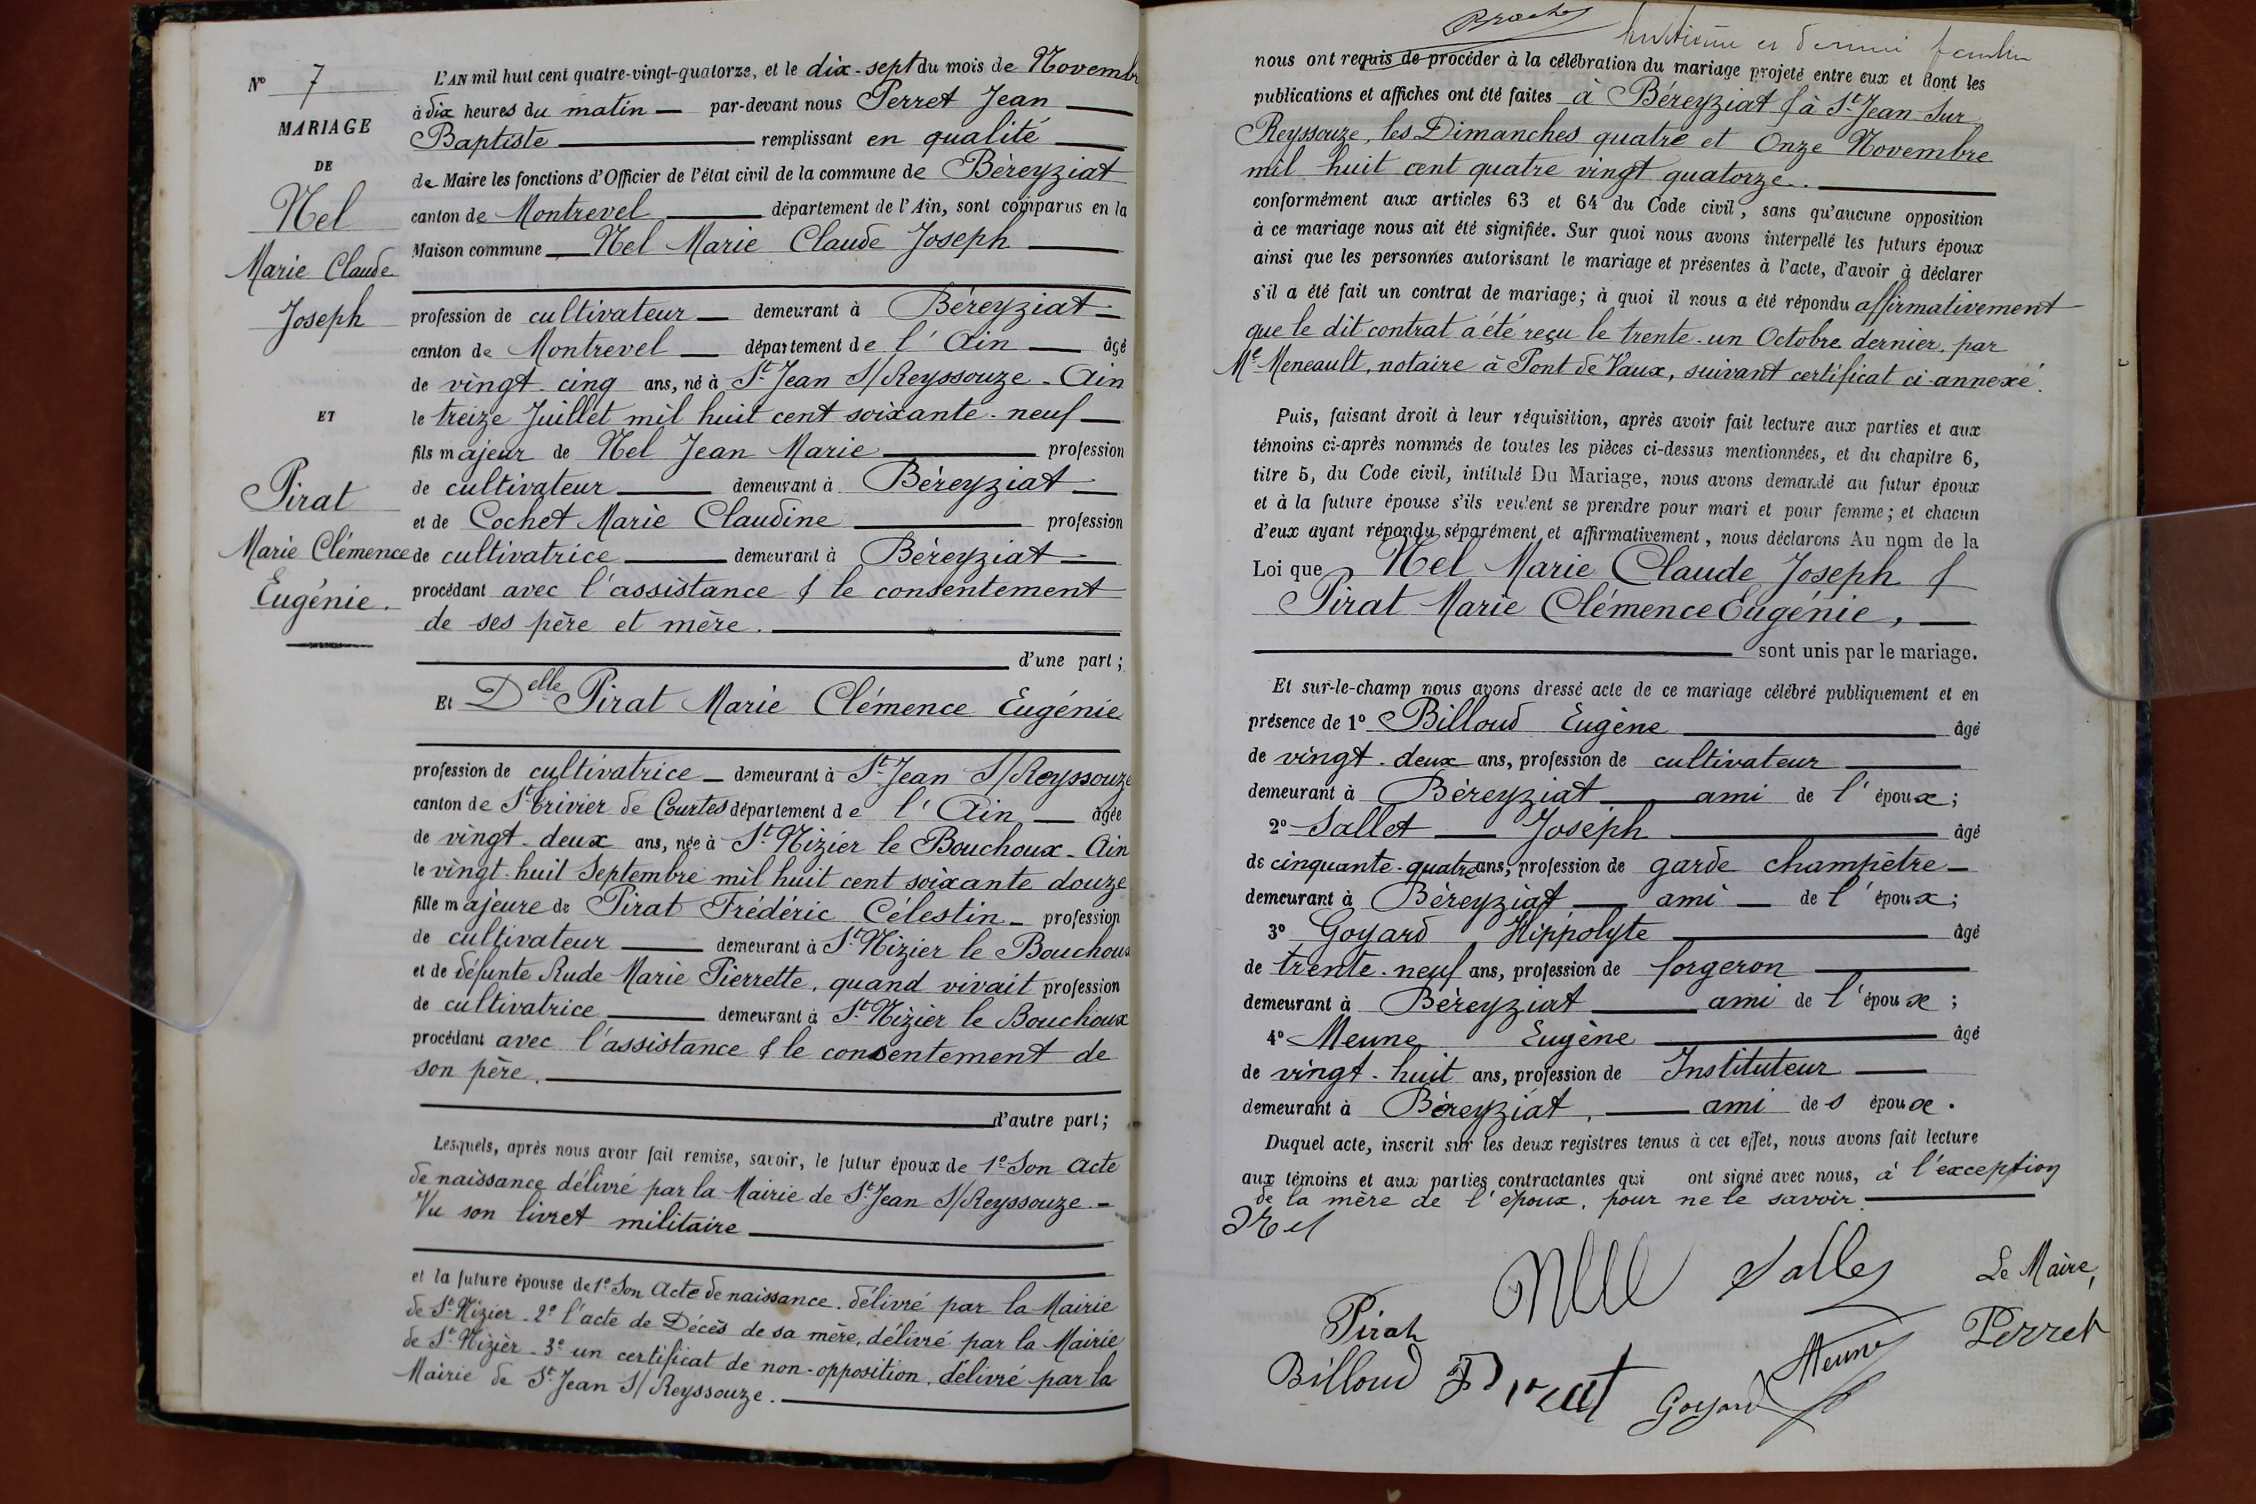 N° 7
MARIAGE
DE
Nel
Marie Claude
Joseph
ET
Pirat
Marie Clémence
Eugénie.
L'AN mil huit cent quatre-vingt-quatorze, et le dix-sept du mois de Novembr
à dix heures du matin — par-devant nous Perret Jean
Baptiste remplissant en qualité
de Maire les fonctions d'Officier de l'état civil de la commune de Béreyziat
canton de Montrevel département de l'Ain, sont comparus en la
Maison commune Nel Marie Claude Joseph
profession de cultivateur — demeurant à Béreyziat
canton de Montrevel — département de l'Ain — âgé
de vingt-cinq ans, né à St Jean S/Reyssouze - Ain
le treize Juillet mil huit cent soixante-neuf
fils majeur de Nel Jean Marie profession
de cultivateur demeurant à Béreyziat
et de Cochet Marie Claudine profession
de cultivatrice demeurant à Béreyziat
procédant avec l'assistance & le consentement
de ses père et mère.
d'une part;
Et Delle Pirat Marie Clémence Eugénie
profession de cultivatrice — demeurant à St Jean S/Reyssouze
canton de St Trivier de Courtes département de l'Ain — âgée
de vingt-deux ans, née à St Nizier le Bouchoux - Ain
le vingt-huit Septembre mil huit cent soixante douze
fille majeure de Pirat Frédéric Célestin — profession
de cultivateur demeurant à St Nizier le Bouchoux
et de défunte Rude Marie Pierrette, quand vivait profession
de cultivatrice demeurant à St Nizier le Bouchoux
procédant avec l'assistance & le consentement de
son père.
d'autre part;
Lesquels, après nous avoir fait remise, savoir, le futur époux de 1° Son acte
de naissance délivré par la Mairie de St Jean S/Reyssouze. —
Vu son livret militaire
et la future épouse de 1° Son Acte de naissance, délivré par la Mairie
de St Nizier - 2° l'acte de Décès de sa mère, délivré par la Mairie
de St Nizier - 3° un certificat de non-opposition, délivré par la
Mairie de St Jean S/Reyssouze.
huitième et dernier feuillet
nous ont requis de procéder à la célébration du mariage projeté entre eux et dont les
publications et affiches ont été faites à Béreyziat & à St Jean Sur
Reyssouze, les Dimanches quatre et Onze Novembre
mil huit cent quatre vingt quatorze.
conformément aux articles 63 et 64 du Code civil, sans qu'aucune opposition
à ce mariage nous ait été signifiée. Sur quoi nous avons interpellé les futurs époux
ainsi que les personnes autorisant le mariage et présentes à l'acte, d'avoir à déclarer
s'il a été fait un contrat de mariage; à quoi il nous a été répondu affirmativement
que le dit contrat a été reçu le trente-un Octobre dernier, par
Me Meneault, notaire à Pont de Vaux, suivant certificat ci-annexé.
Puis, faisant droit à leur réquisition, après avoir fait lecture aux parties et aux
témoins ci-après nommés de toutes les pièces ci-dessus mentionnées, et du chapitre 6,
titre 5, du Code civil, intitulé Du Mariage, nous avons demandé au futur époux
et à la future épouse s'ils veulent se prendre pour mari et pour femme; et chacun
d'eux ayant répondu séparément et affirmativement, nous déclarons Au nom de la
Loi que Nel Marie Claude Joseph &
Pirat Marie Clémence Eugénie,
sont unis par le mariage.
Et sur-le-champ nous avons dressé acte de ce mariage célébré publiquement et en
présence de 1° Billoud Eugène âgé
de vingt-deux ans, profession de cultivateur
demeurant à Béreyziat ami de l'époux;
2° Sallet — Joseph âgé
de cinquante-quatre ans, profession de garde champêtre —
demeurant à Béreyziat — ami — de l'époux;
3° Goyard Hippolyte âgé
de trente-neuf ans, profession de forgeron
demeurant à Béreyziat ami de l'époux;
4° Meune Eugène âgé
de vingt-huit ans, profession de Instituteur
demeurant à Béreyziat, ami des époux.
Duquel acte, inscrit sur les deux registres tenus à cet effet, nous avons fait lecture
aux témoins et aux parties contractantes qui ont signé avec nous, à l'exception
de la mère de l'époux, pour ne le savoir.
Nel
Sallet
Le Maire,
Pirat
Perret
Meune
Billoud
Pirat
Goyard